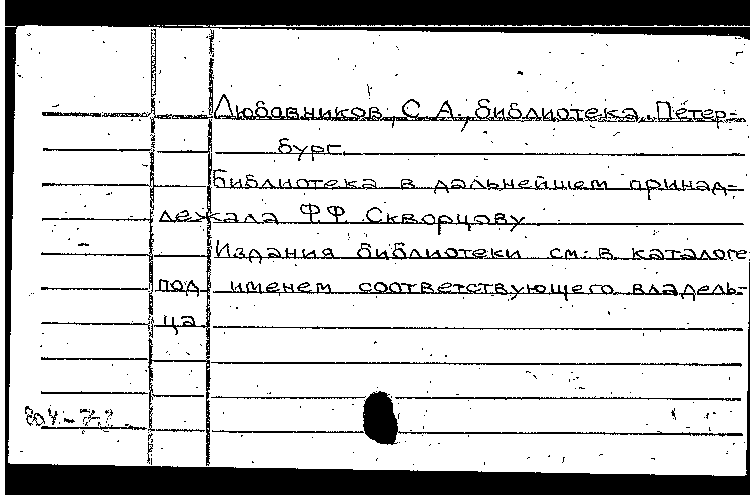 Любавников, С. А., библиотека. Петер-
бург.
Библиотека в дальнейшем принад-
лежала Ф.Ф. Скворцову.
Издания библиотеки см. в каталоге
под именем соответствующего владель-
ца.